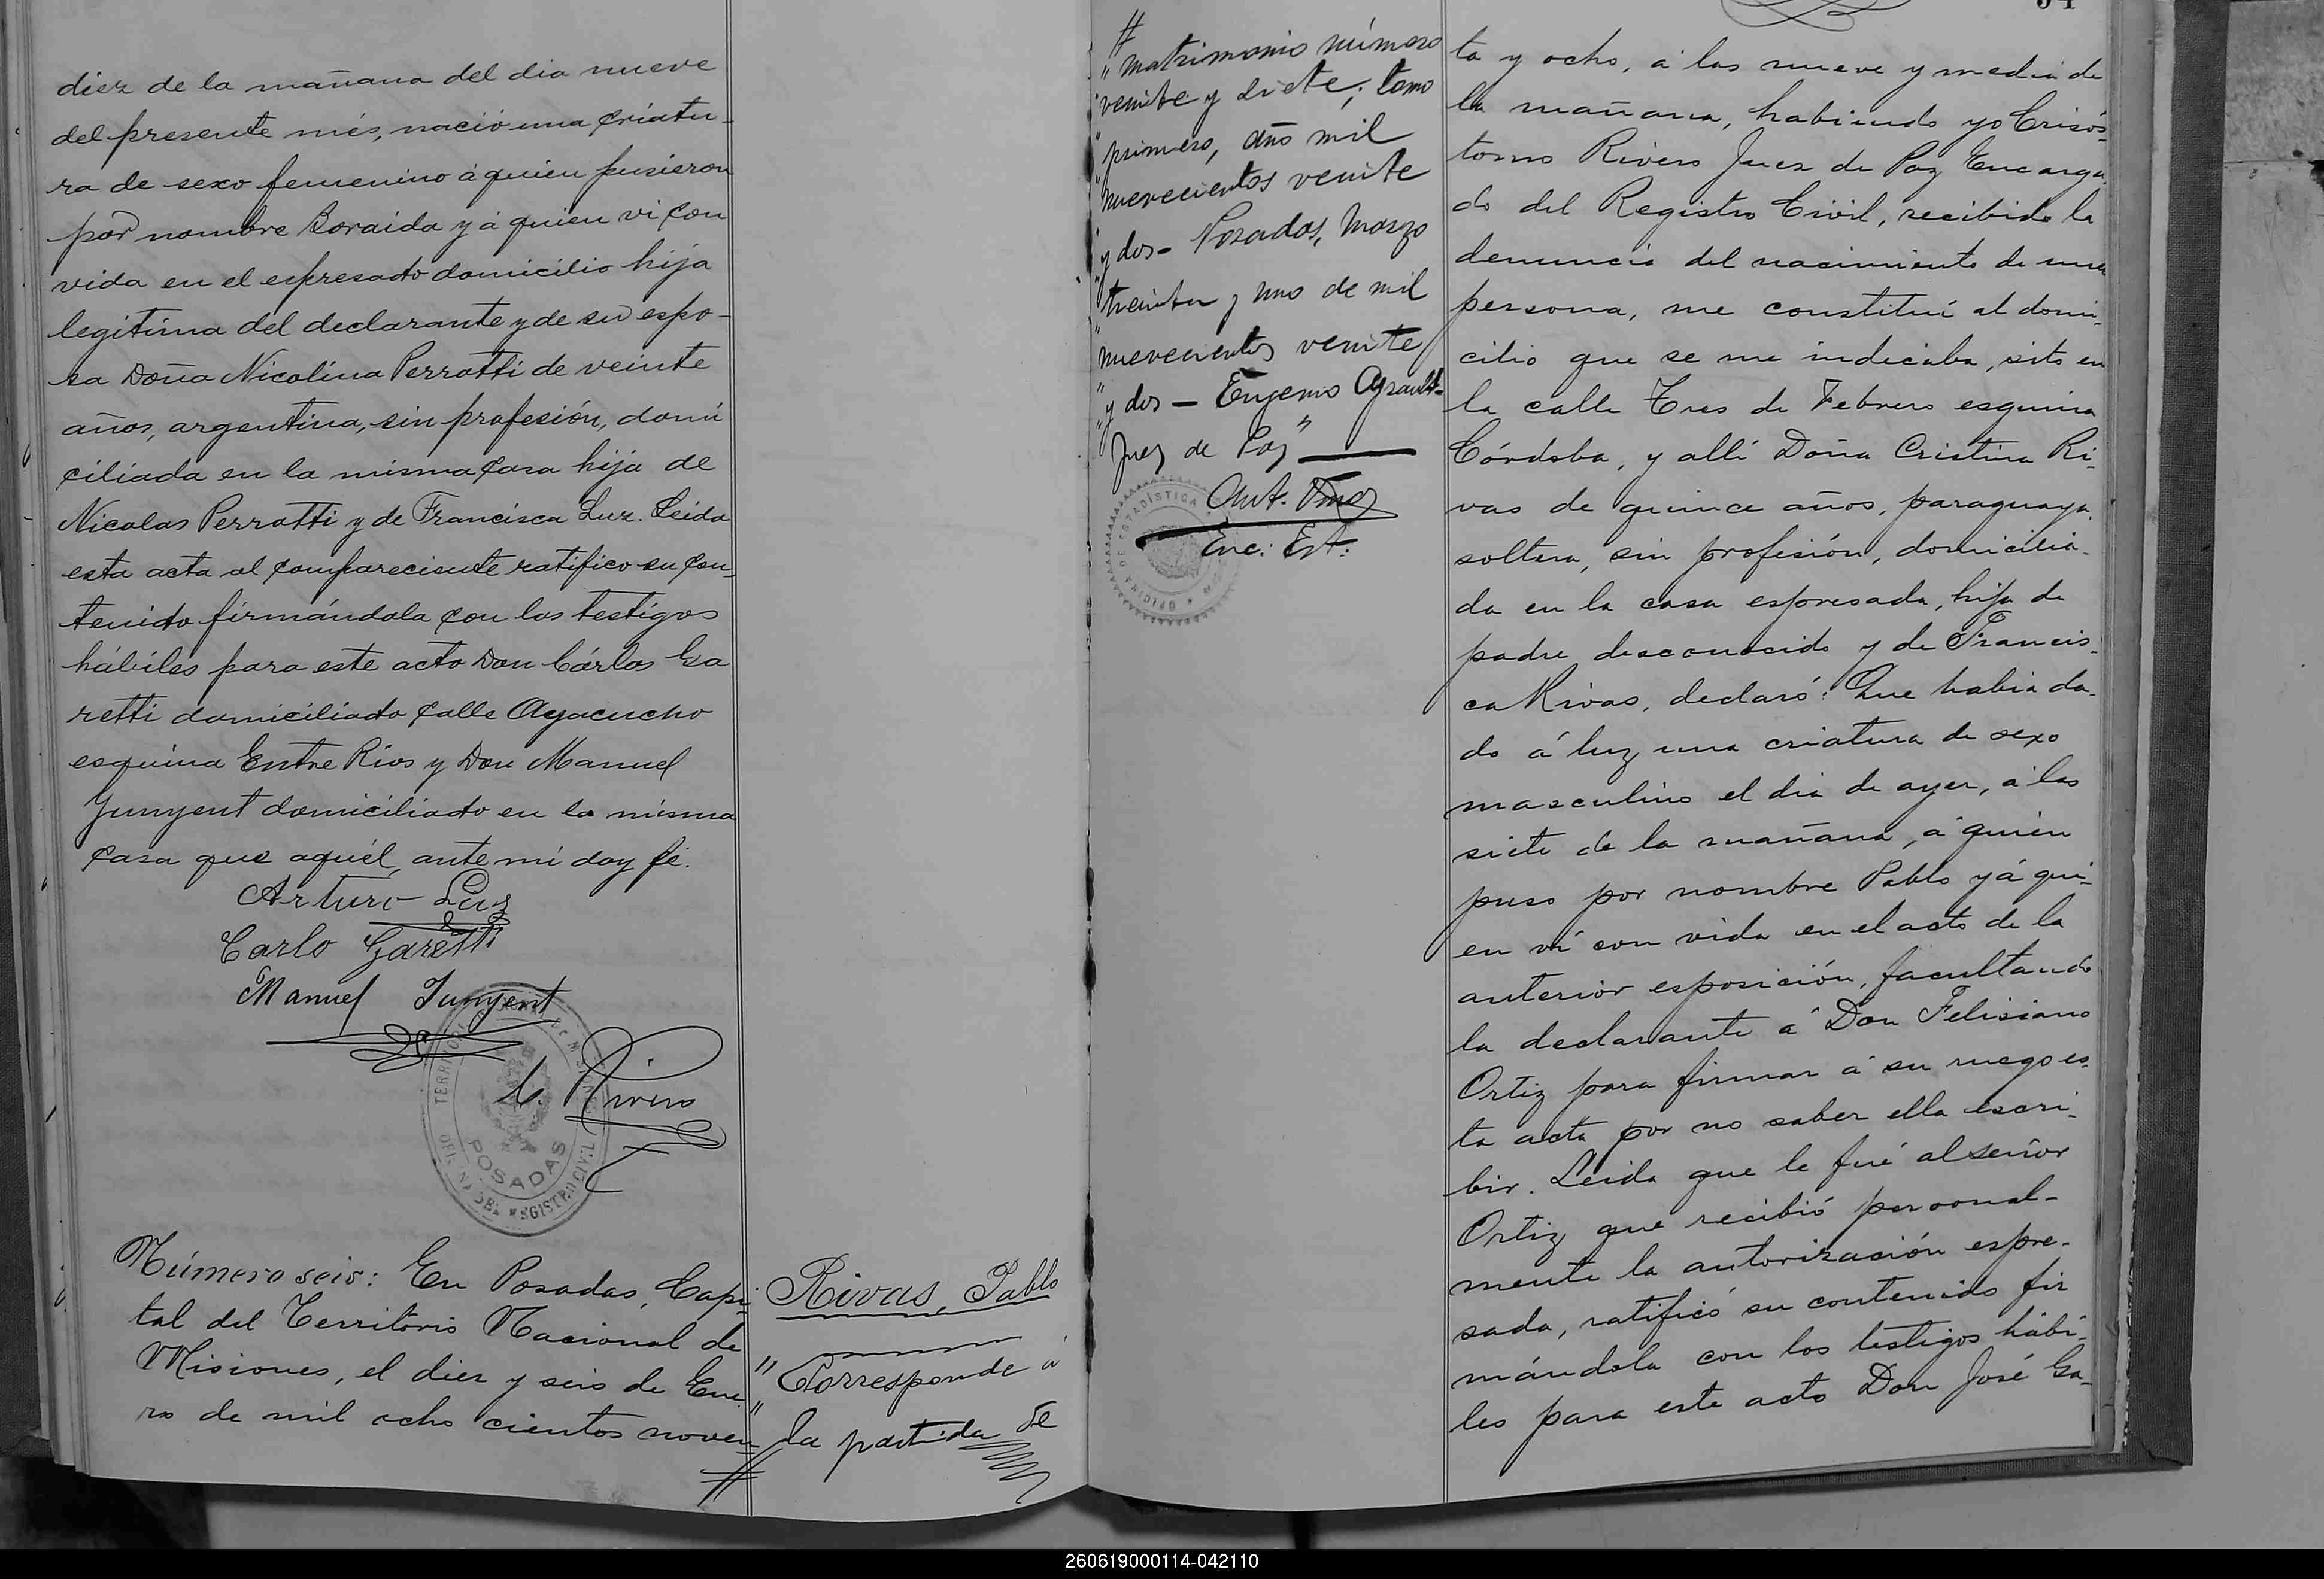 diez de la mañana del dia nueve
del presente més, nació una criatu-
ra de sexo femenino á quien pusieron
por nombre Zoraida y á quien vi con
vida en el espresado domicilio hija
legitima del declarante y de su espo-
sa Doña Nicolina Perrotti de veinte
años, argentina, sin profesión, domi
ciliada en la misma casa hija de
Nicolas Perrotti y de Francisca Luz. Leida
esta acta al compareciente ratifico su con-
tenido firmándola con los testigos
hábiles para este acto Don Cárlos Ga
retti domiciliado calle Ayacucho
esquina Entre Rios y Don Manuel
Junyent domiciliado en la misma
casa que aquél, ante mi doy fé.
Arturo Luz
Carlo Garetti
Manuel Junyent
C. Rivero
POSADAS
Número seis: En Posadas, Capi-
tal del Territorio Nacional de
Misiones, el diez y seis de Ene-
ro de mil ocho cientos noven
Rivas, Pablo
" Corresponde á
" la partida de
#
#
" matrimonio número
" veinte y siete, tomo
" primero, año mil
" nuevecientos veinte
" y dos - Posadas, Marzo
" treinta y uno de mil
" nuevecientos veinte
" y dos - Eugenio
Juez de Paz "
Enc: Est.
OFICINA DE ESTADÍSTICA
ta y ocho, á las nueve y media de
la mañana, habiendo yo Crisós-
tomo Rivero Juez de Paz Encarga-
do del Registro Civil, recibido la
denuncia del nacimiento de una
persona, me constituí al domi-
cilio que se me indicaba, sito en
la calle Tres de Febrero esquina
Córdoba, y allí Doña Cristina Ri-
vas de quince años, paraguaya,
soltera, sin profesión, domicilia-
da en la casa espresada, hija de
padre desconocido y de Francis-
ca Rivas, declaró: Que habia da-
do á luz una criatura de sexo
masculino el dia de ayer, á las
siete de la mañana, á quien
puso por nombre Pablo y á qui-
en ví con vida en el acto de la
anterior esposición, facultando
la declarante á Don Felisiano
Ortiz para firmar á su ruego es-
ta acta por no saber ella escri-
bir. Leida que le fué al señor
Ortiz que recibió personal-
mente la autorización espre-
sada, ratificó su contenido fir
mándola con los testigos hábi-
les para este acto Don José Ga-
260619000114-042110